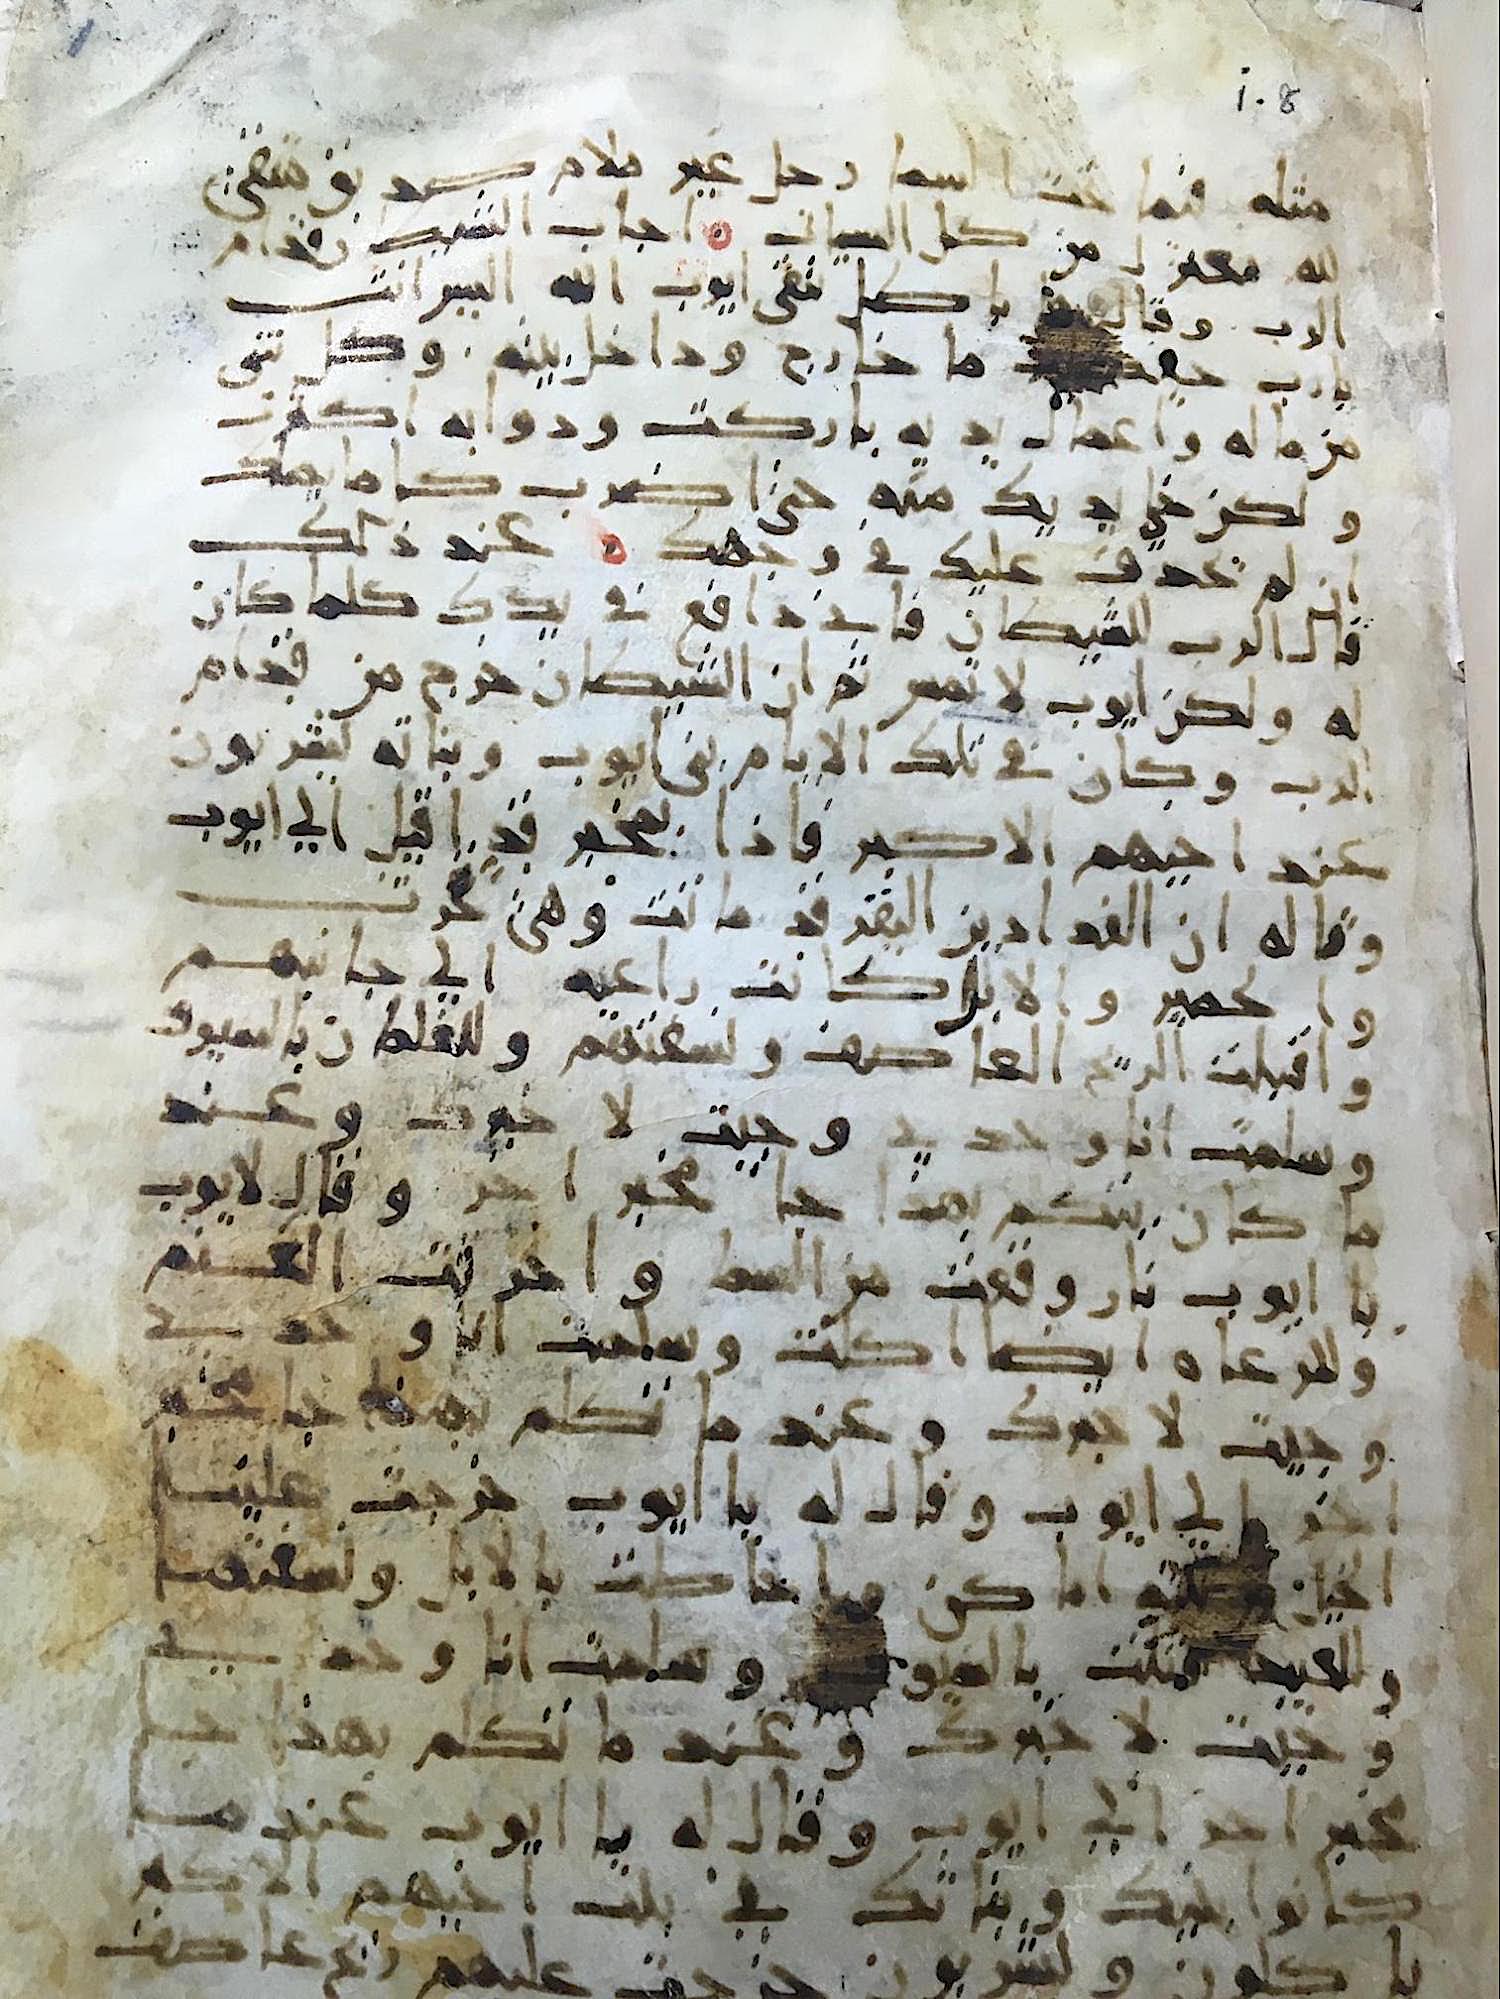 ١٠٨
مثله فيما تحت السما رجل غير ملام صديق متقى
لله معتزل من كل السيات اجاب الشيطان قدام
الرب وقال باطل يتقى ايوب الله اليس انت
يارب ما خارج وداخل بيته وكل شى
من ماله واعمال يديه باركت ودوابه اكثرت
ولكن يديك منه حتى اضرب كلما يملك
ان لم يجدف عليك في وجهك عند ذلك
قال الرب للشيطان قد دافع في يدك كلما كان
له ولكن ايوب لا تمس ثم ان الشيطان خرج من قدام
الرب وكان في تلك الايام بنى ايوب وبناته يشربون
عند اخيهم الاكبر فاذا بمخبر قد اقبل الي ايوب
وقال له ان الفدادين البقر قد وهى تحرث
والحمير والابل كانت راعيه الي جانبهم
واقبلت الريح العاصف و والغلمان بالسيوف
وسلمت انا وحدي وجيت لاخبرك وعند
ما كان يتكلم بهذا جا مخبر اخر وقال لايوب
يا ايوب نار وقعت من السما واحرقت الغنم
والرعاه ايضا اكلت وسلمت انا وحدي
وجيت لاخبرك وعند ما تكلم بهذا جا مخبر
اخر الي ايوب وقال له يا ايوب خرجت علينا
الخيل بالابل
والعبيد قتلت بالسيوف وسلمت انا وحدي
وجيت لاخبرك وعند ما تكلم بهذا جا
مخبر اخر الي ايوب وقال له يا ايوب عندما
كانوا بنيك وبناتك في بيت اخيهم الاكبر
ياكلون ويشربون خرجت عليهم ريح عاصف